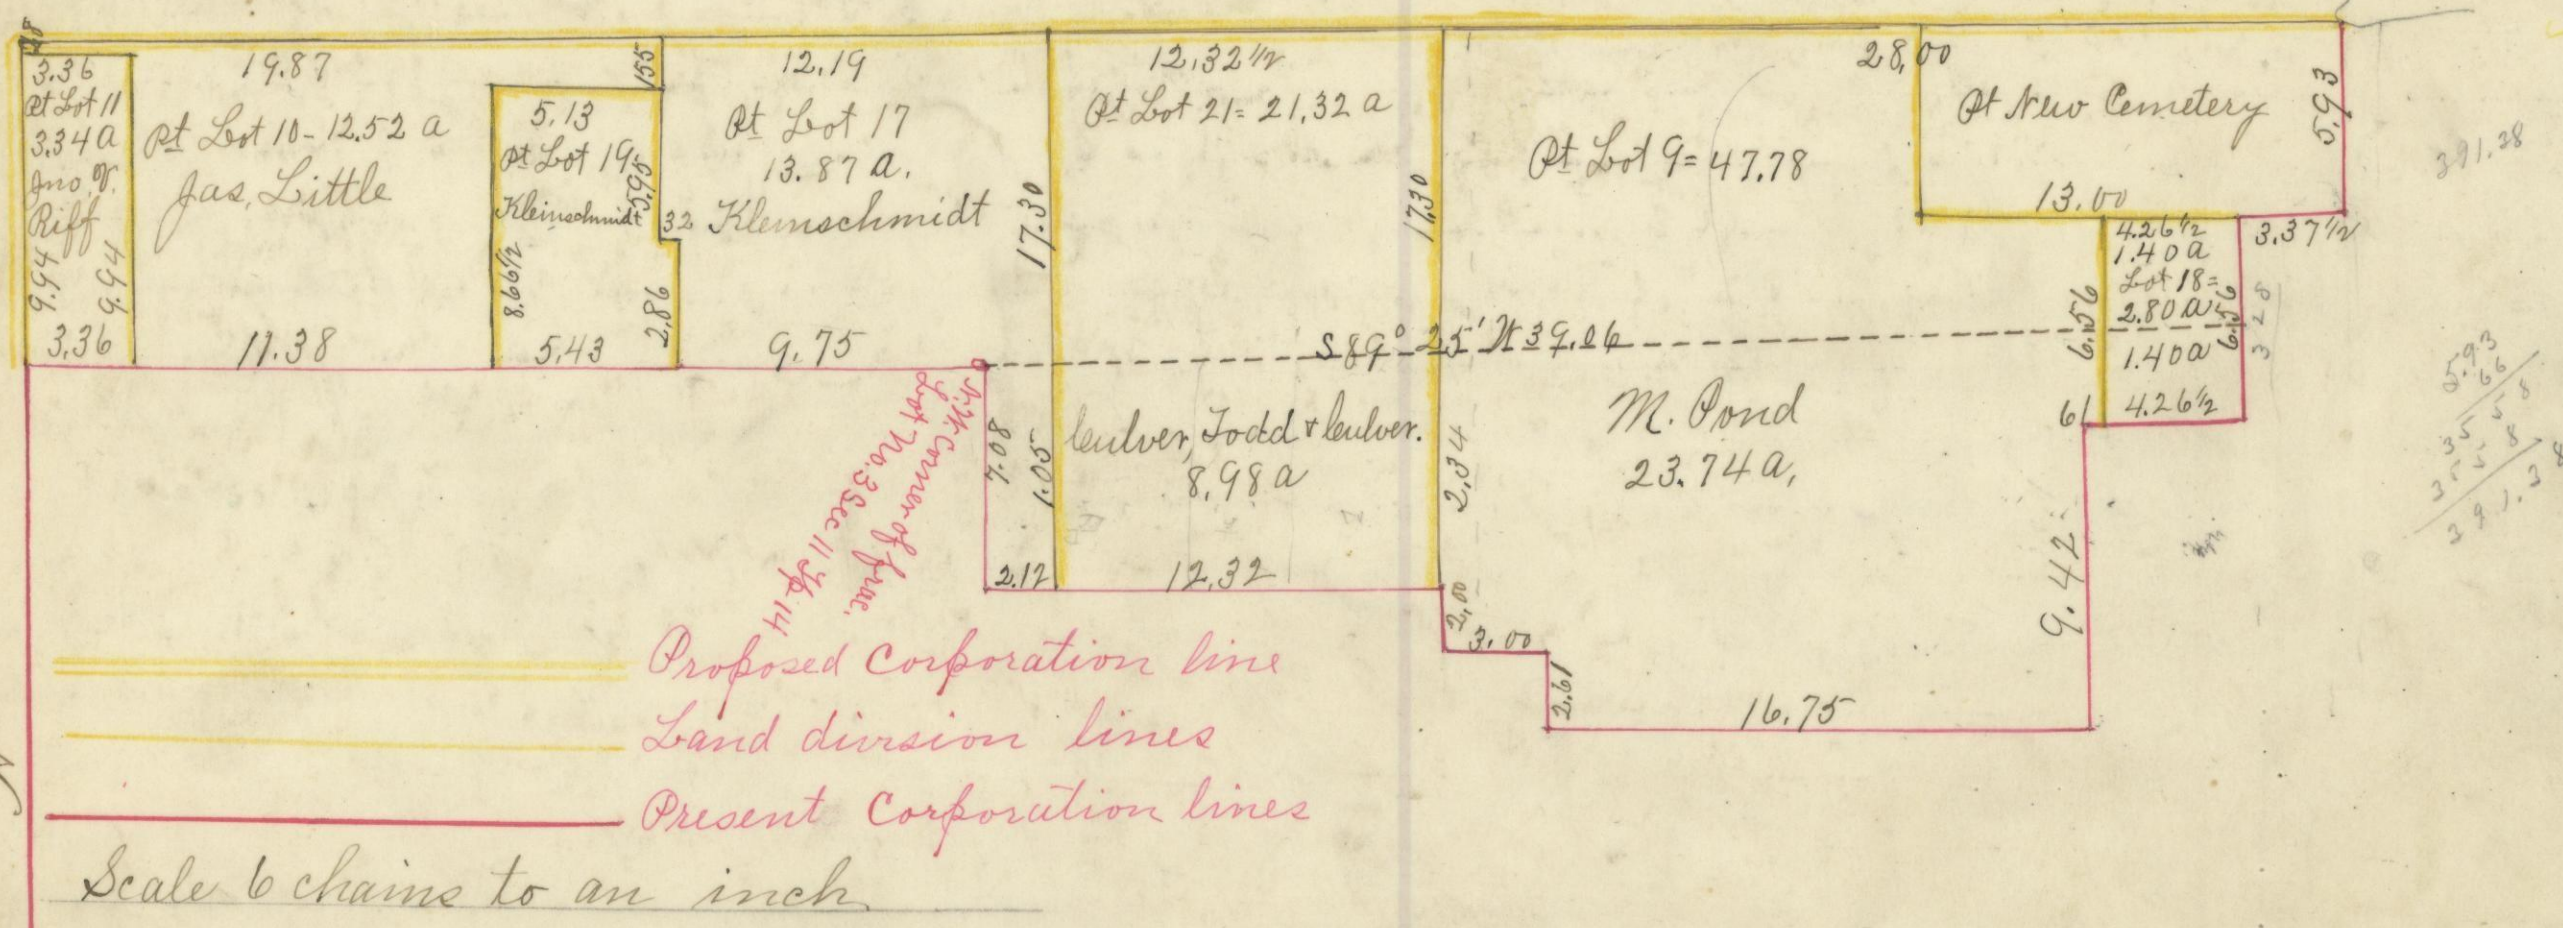 3.36
Pt Lot 11
3.34 a
Jno. V.
Riff
9.94
9.94
3.36
19.87
Pt Lot 10 - 12.52 a
Jas. Little
11.38
155
5.13
Pt Lot 19
5.95
Kleinschmidt
32
8.66 1/2
2.86
5.43
12.19
Pt Lot 17
13.87 a.
Kleinschmidt
9.75
17.30
12.32 1/2
Pt Lot 21 = 21.32 a
17.30
28,00
Pt Lot 9 = 47.78
Pt New Cemetery
5.93
13.00
3.37 1/2
4.26 1/2
1.40 a
Lot 18 =
2.80 a
6.56
6.56
1.40 a
4.26 1/2
61
328
391.38
5.93
66
3558
3558
391.38
S 89° 25' W 39.06
N.W. Corner of frac.
Lot No. 3 Sec 11 Tp 14
7.08
1.05
2.12
Culver, Todd & Culver.
8.98 a
12.32
2.34
M. Pond
23.74 a,
2.00
3.00
2.61
16.75
9.42
Proposed Corporation line
Land division lines
Present Corporation lines
Scale 6 chains to an inch